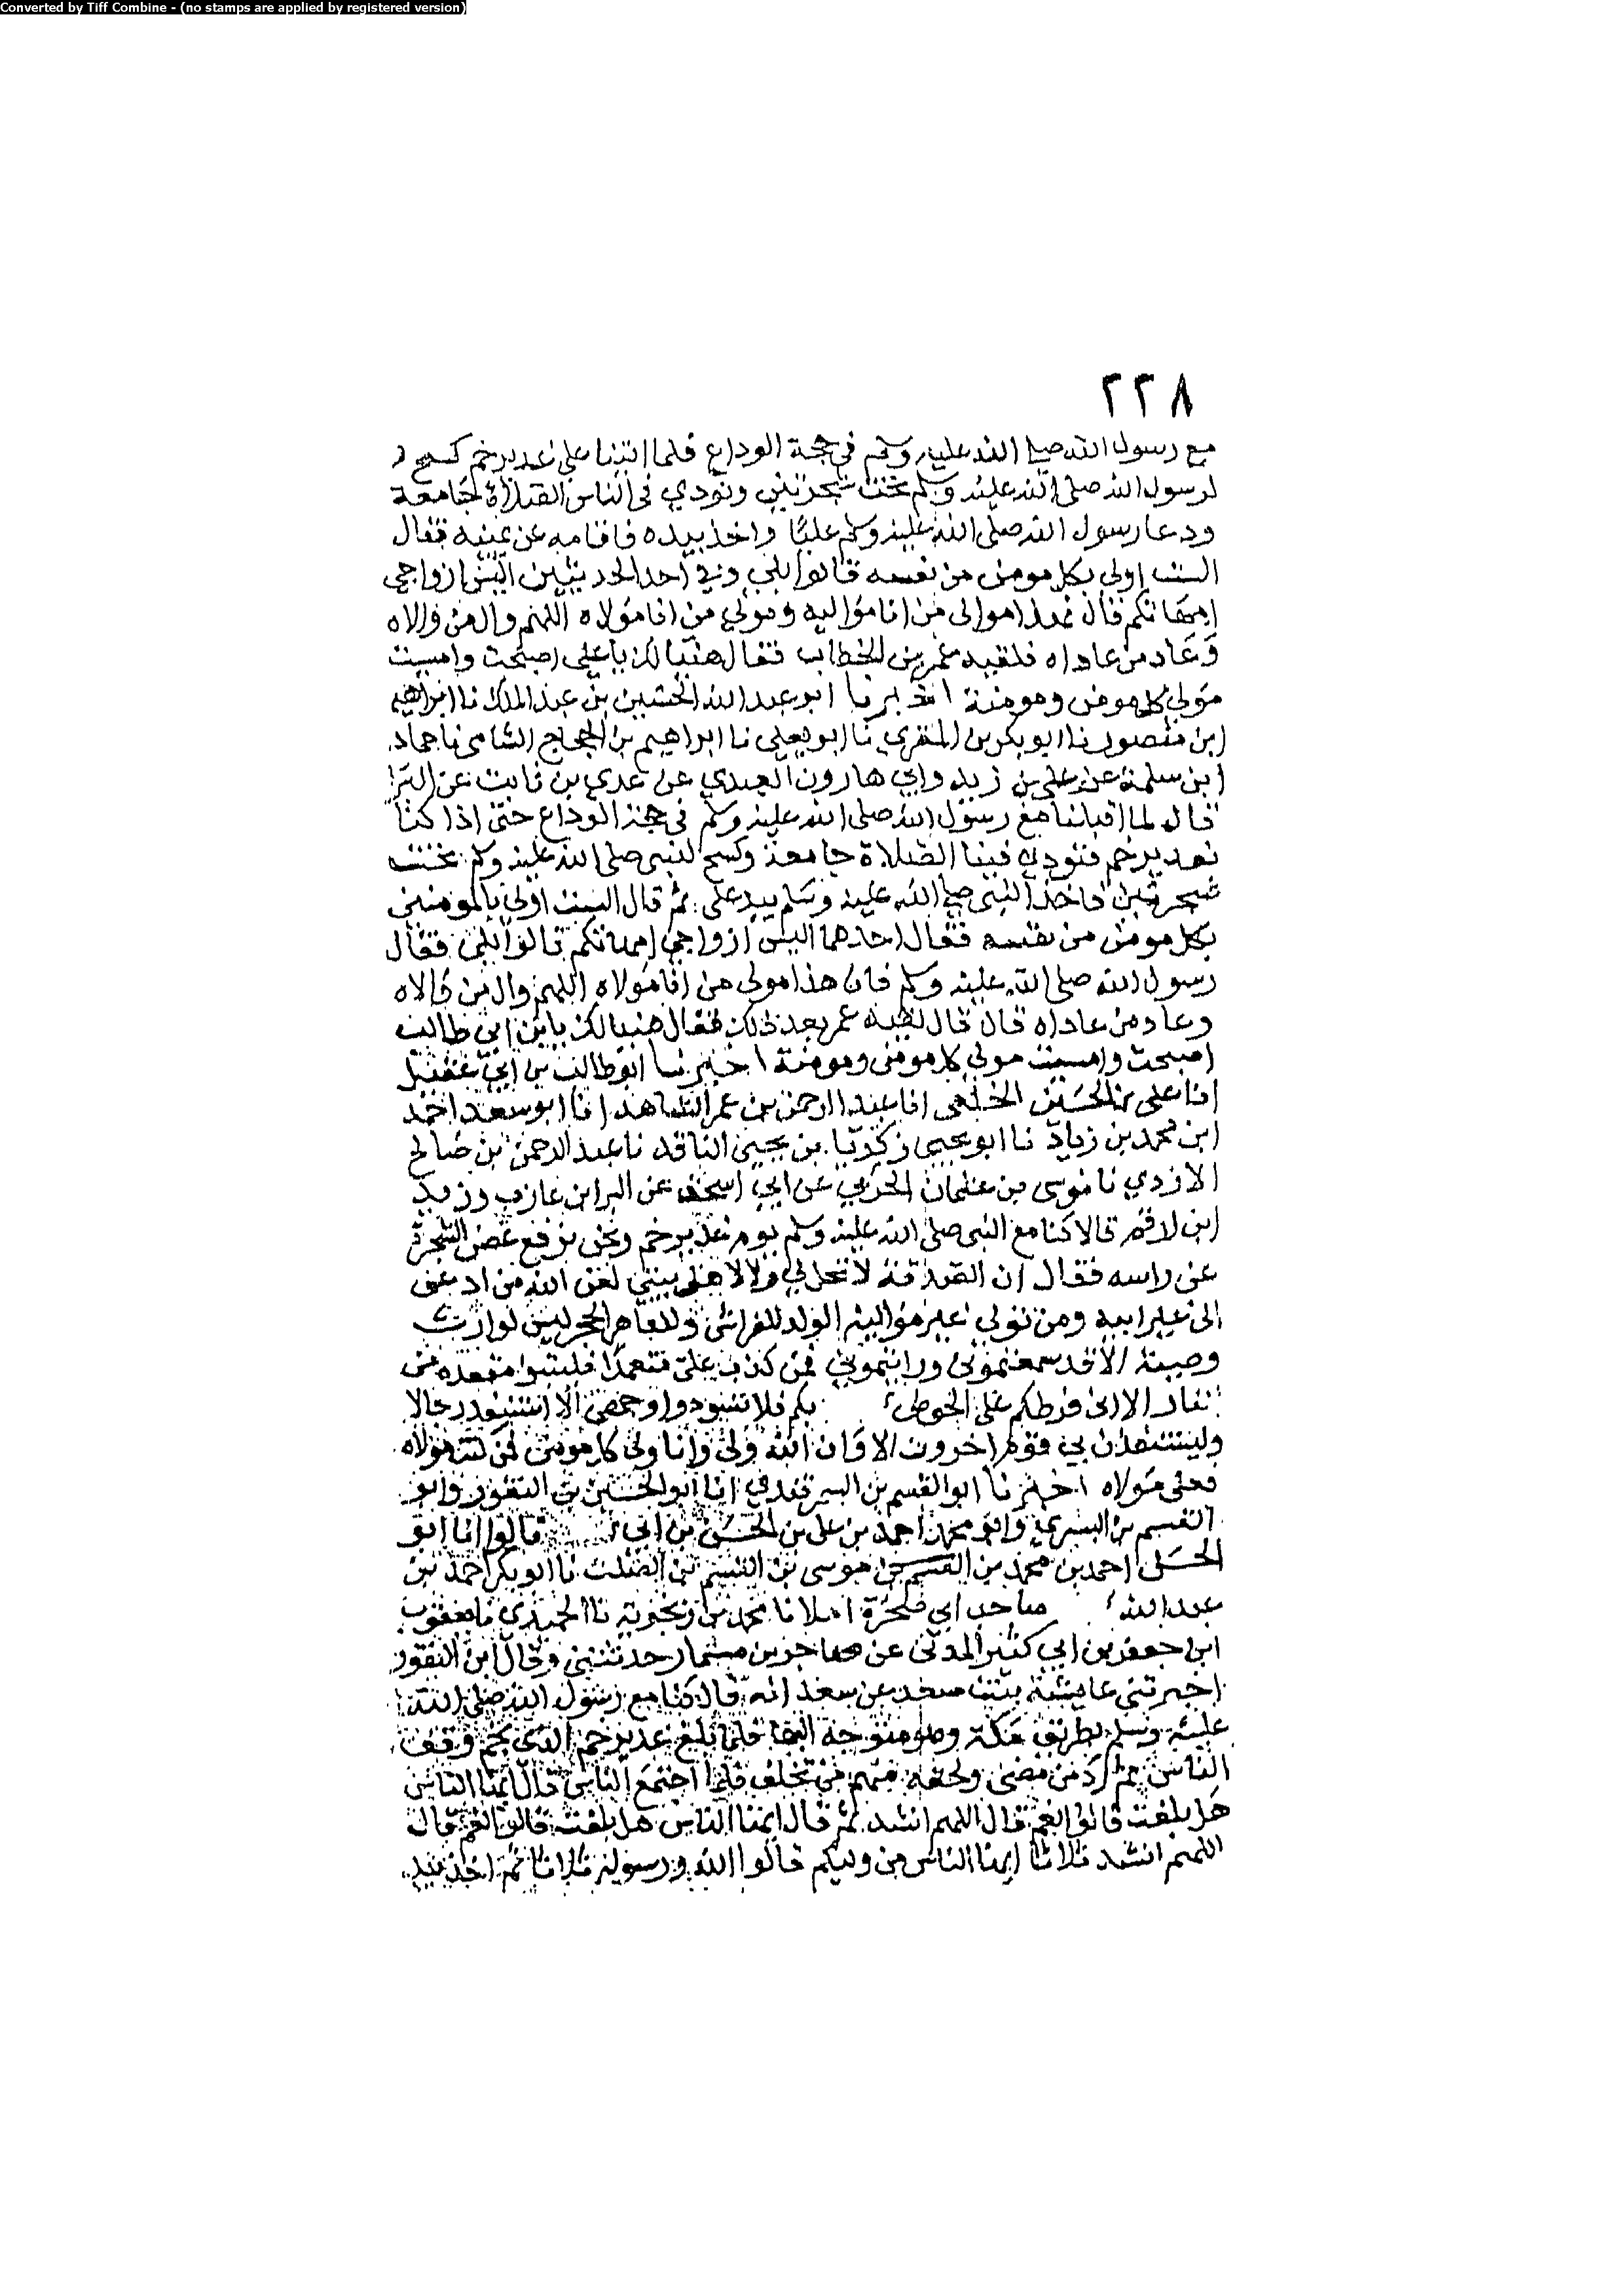 Converted by Tiff Combine - (no stamps are applied by registered version)
٢٢٨
مع رسول الله صلى الله عليه وسلم في حجة الوداع فلما اتينا على غدير خم كسح
لرسول الله صلى الله عليه وسلم تحت شجرتين ونودي في الناس الصلاة جامعة
ودعا رسول الله صلى الله عليه وسلم عليا واخذ بيده فاقامه عن يمينه فقال
الست اولى بكل مومن من نفسه قالوا بلى وفي احد الحديثين اليس ازواجي
امهاتكم فقال هذا موالى من انا مواليه ومولى من انا مولاه اللهم وال من والاه
وعاد من عاداه فلقيه عمر بن الخطاب فقال هنيا لك يا على اصبحت وامسيت
مولى كل مومن ومومنة اخبرنا ابو عبد الله الحسين بن عبد الملك نا ابراهيم
ابن منصور نا ابو بكر بن المقري نا ابو يعلى نا ابراهيم بن الحجاج الشامى نا حماد
ابن سلمة عن على بن زيد وابي هارون العبدي عن عدي بن ثابت عن البرا
قال لما اقبلنا مع رسول الله صلى الله عليه وسلم في حجة الوداع حتى اذا كنا
بغدير خم فنودي فينا الصلاة جامعة وكسح للنبى صلى الله عليه وسلم تحت
شجرتين فاخذ النبى صلى الله عليه وسلم بيد على ثم قال الست اولى بالمومنين
بكل مومن من نفسه فقال احدهما اليس ازواجي امهاتكم قالوا بلى فقال
رسول الله صلى الله عليه وسلم فان هذا مولى من انا مولاه اللهم وال من والاه
وعاد من عاداه قال قال لقيه عمر بعد ذلك فقال هنيا لك يا بن ابي طالب
اصبحت وامسيت مولى كل مومن ومومنة اخبرنا ابو طالب بن ابي عقيل
انا على بن الحسن الخلعى انا عبد الرحمن بن عمر الشاهد انا ابو سعد احمد
ابن محمد بن زياد نا ابو يحيى زكريا بن يحيى الناقد نا عبد الرحمن بن صالح
الازدي نا موسى بن عثمان الحضرمي عن ابي اسحق عن البرا بن عازب وزيد
ابن لارقم قالا كنا مع النبى صلى الله عليه وسلم يوم غدير خم ونحن نرفع غصن الشجرة
عن راسه فقال ان الصدقة لا تحل لي ولا لاهل بيتي لعن الله من ادعى
الى غير ابيه ومن تولى غير مواليه الولد للفراش وللعاهر الحجر ليس لوارث
وصية الا قد سمعتموني ورايتموني فمن كذب على متعمدا فليتبوا مقعده من
النار الا اني فرطكم على الحوض بكم فلا تسودوا وجهي الا لاستنقذن رجالا
وليستنقذن بي قوم اخرون الا وان الله ولى وانا ولى كل مومن فمن كنت مولاه
فعلى مولاه اخبرنا ابو القسم بن السمرقندي انا ابو الحسين بن النقور وابو
القسم بن البسري وابو محمد احمد بن على بن الحسن بن ابي قالوا انا ابو
الحسن احمد بن محمد بن القسم بن موسى بن القسم بن الصلت نا ابو بكر احمد بن
عبد الله صاحب ابي صخرة املا نا محمد بن زنجوية نا الحميدي نا يعقوب
ابن جعفر بن ابي كثير المدني عن مهاجر بن مسمار حدثتني وقال ابن النقور
اخبرتني عايشة بنت سعد عن سعد انه قال كنا مع رسول الله صلى الله
عليه وسلم بطريق مكة وهو متوجه اليها فلما بلغ غدير خم الذي بخم وقف
الناس ثم رد من مضى ولحقه منهم من تخلف فلما اجتمع الناس قال ايها الناس
هل بلغت قالوا نعم قال اللهم اشهد ثم قال ايها الناس هل بلغت قالوا نعم قال
اللهم اشهد ثلاثا ايها الناس من وليكم قالوا الله ورسوله ثلاثا ثم اخذ بيد